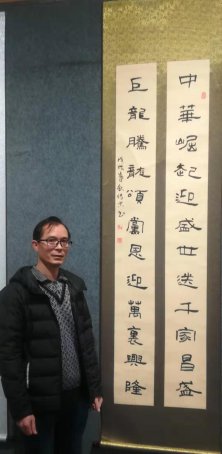 中華崛起迎盛世送千家昌盛
巨龍騰頌黨恩迎萬裏興隆
戊戌春